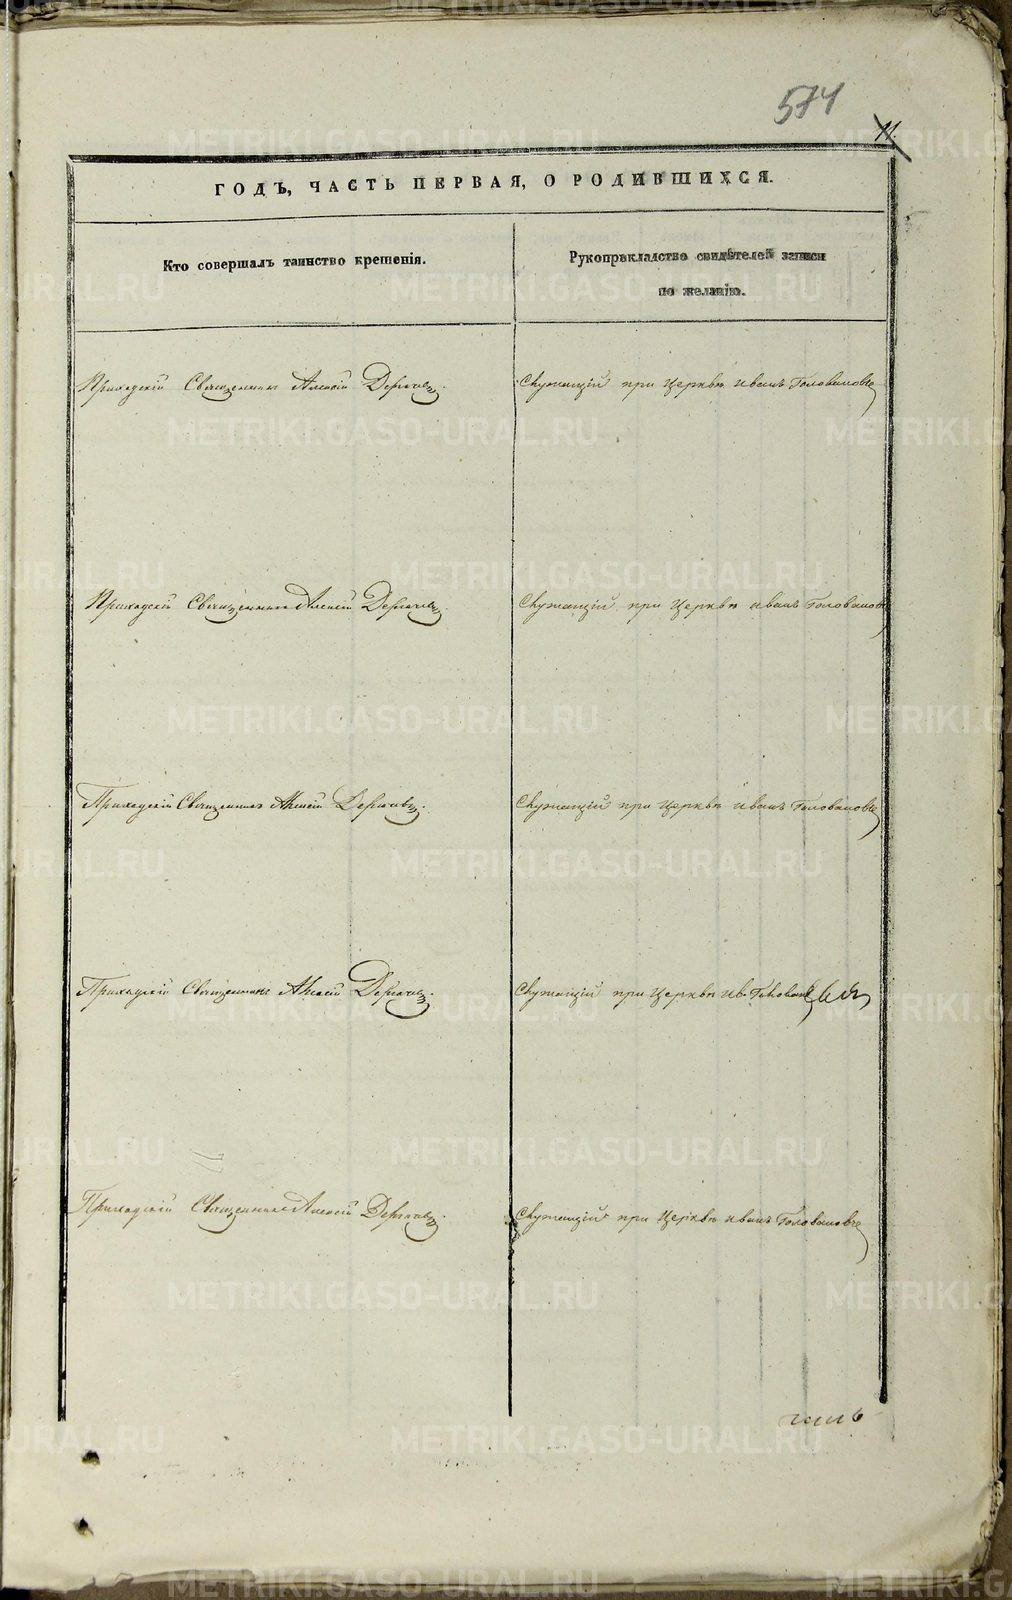 574
11.
ГОДЪ, ЧАСТЬ ПЕРВАЯ, О РОДИВШИХСЯ.
Кто совершалъ таинство крещенія.
Рукоприкладство свидѣтелей записи
по желанію.
Приходскій Священникъ Алексій
Служащій при Церквѣ Иванъ Головановъ
Приходскій Священникъ Алексій
Служащій при Церквѣ Иванъ Головановъ
Приходскій Священникъ Алексій
Служащій при Церквѣ Иванъ Головановъ
Приходскій Священникъ Алексій
Служащій при Церквѣ Ив. Головановъ
Приходскій Священникъ Алексій
Служащій при Церквѣ Иванъ Головановъ
METRIKI.GASO-URAL.RU